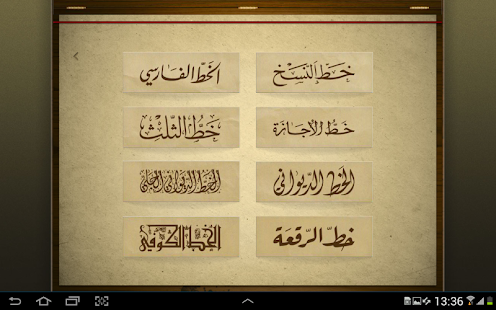 خط النسخ
الخط الفارسي
خط الإجازة
خط الثلث
الخط الديواني
الخط الديواني الجلي
خط الرقعة
الخط الكوفي
13:36